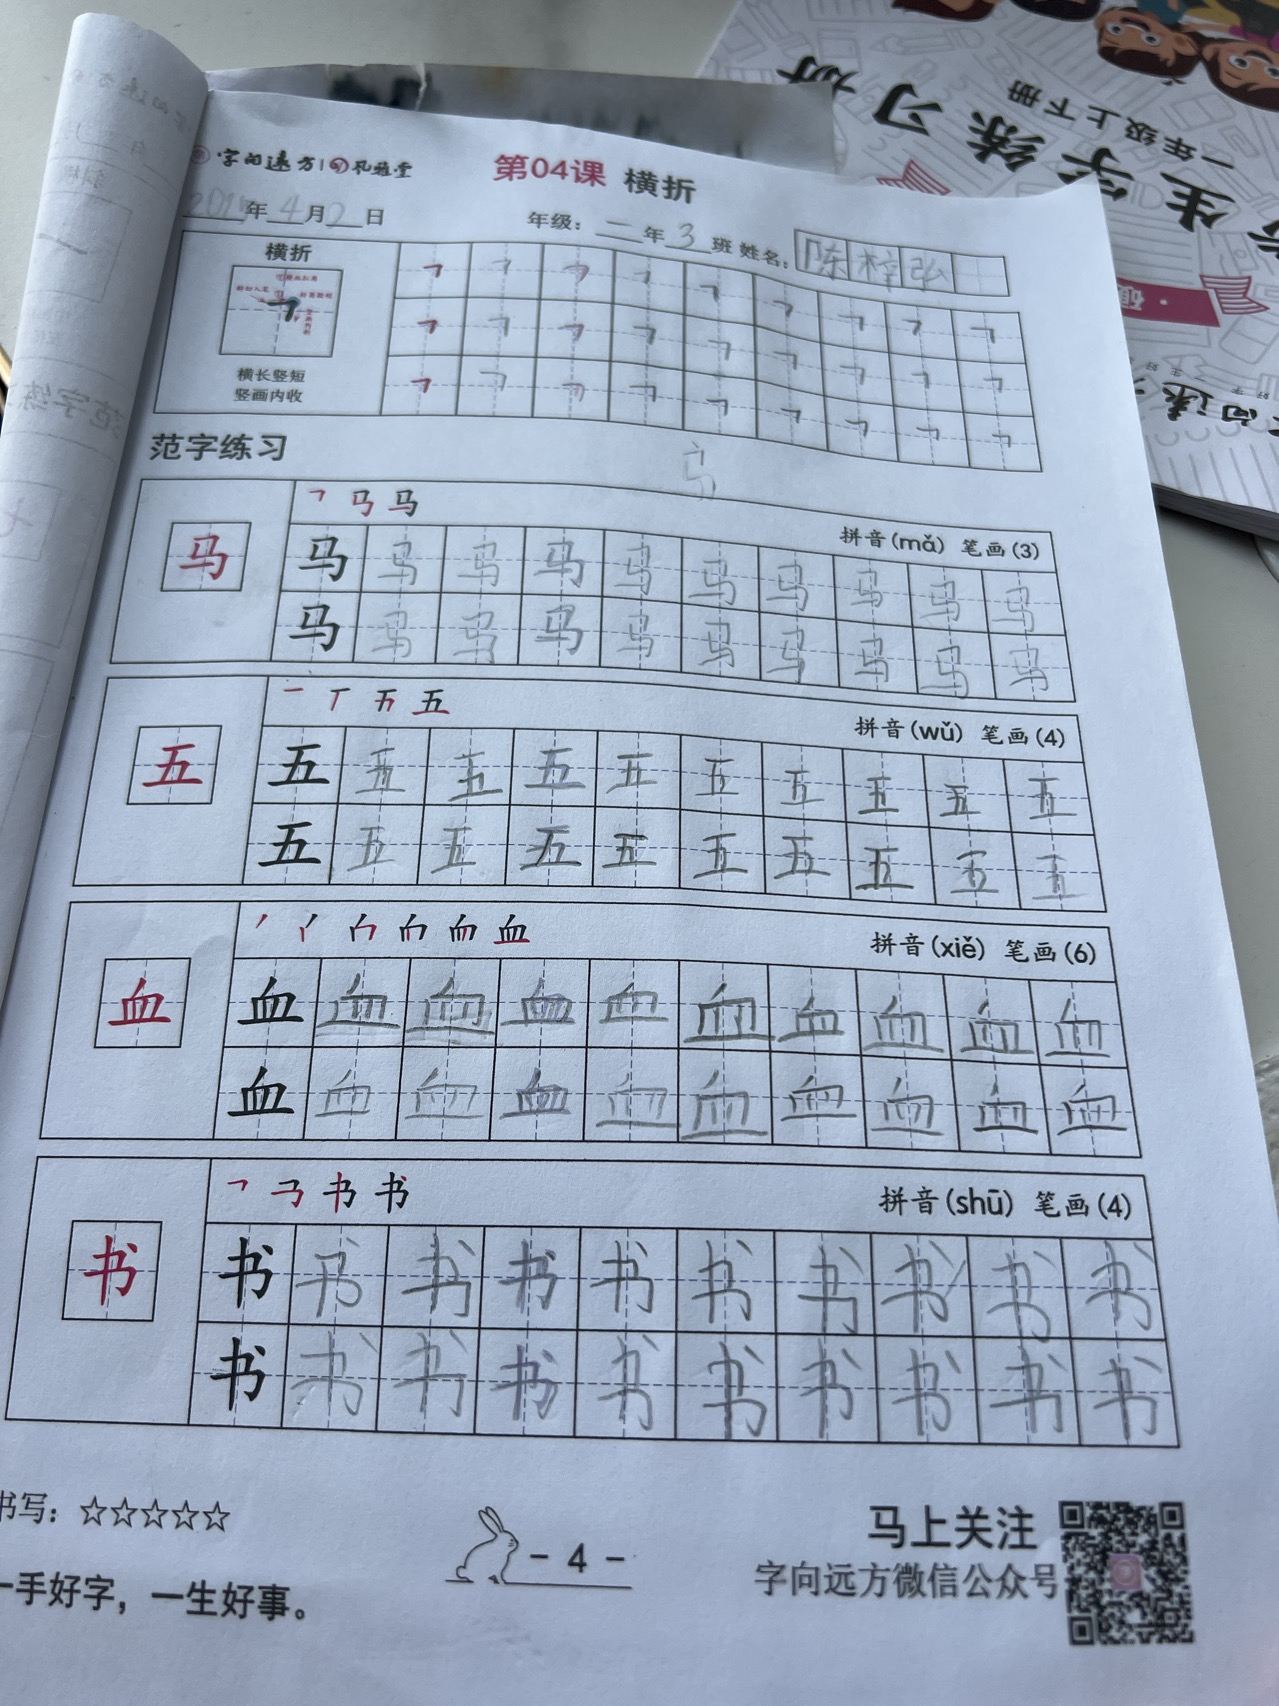 字向远方 风雅堂
第04课 横折
年4月2日 年级：二年3班 姓名：陈梓弘
横折
横长竖短
竖画内收
范字练习
马
马 拼音(mǎ) 笔画(3)
马 马 马 马 马 马 马 马 马 马 马
马 马 马 马 马 马 马 马 马 马
五 拼音(wǔ) 笔画(4)
五 五 五 五 五 五 五 五 五 五 五
五 五 五 五 五 五 五 五 五 五
血 拼音(xiě) 笔画(6)
血 血 血 血 血 血 血 血 血 血 血
血 血 血 血 血 血 血 血 血 血
书 拼音(shū) 笔画(4)
书 书 书 书 书 书 书 书 书 书 书
书 书 书 书 书 书 书 书 书 书
书写：☆☆☆☆☆
- 4 -
马上关注
字向远方微信公众号
一手好字，一生好事。
生字练习册
一年级上下册